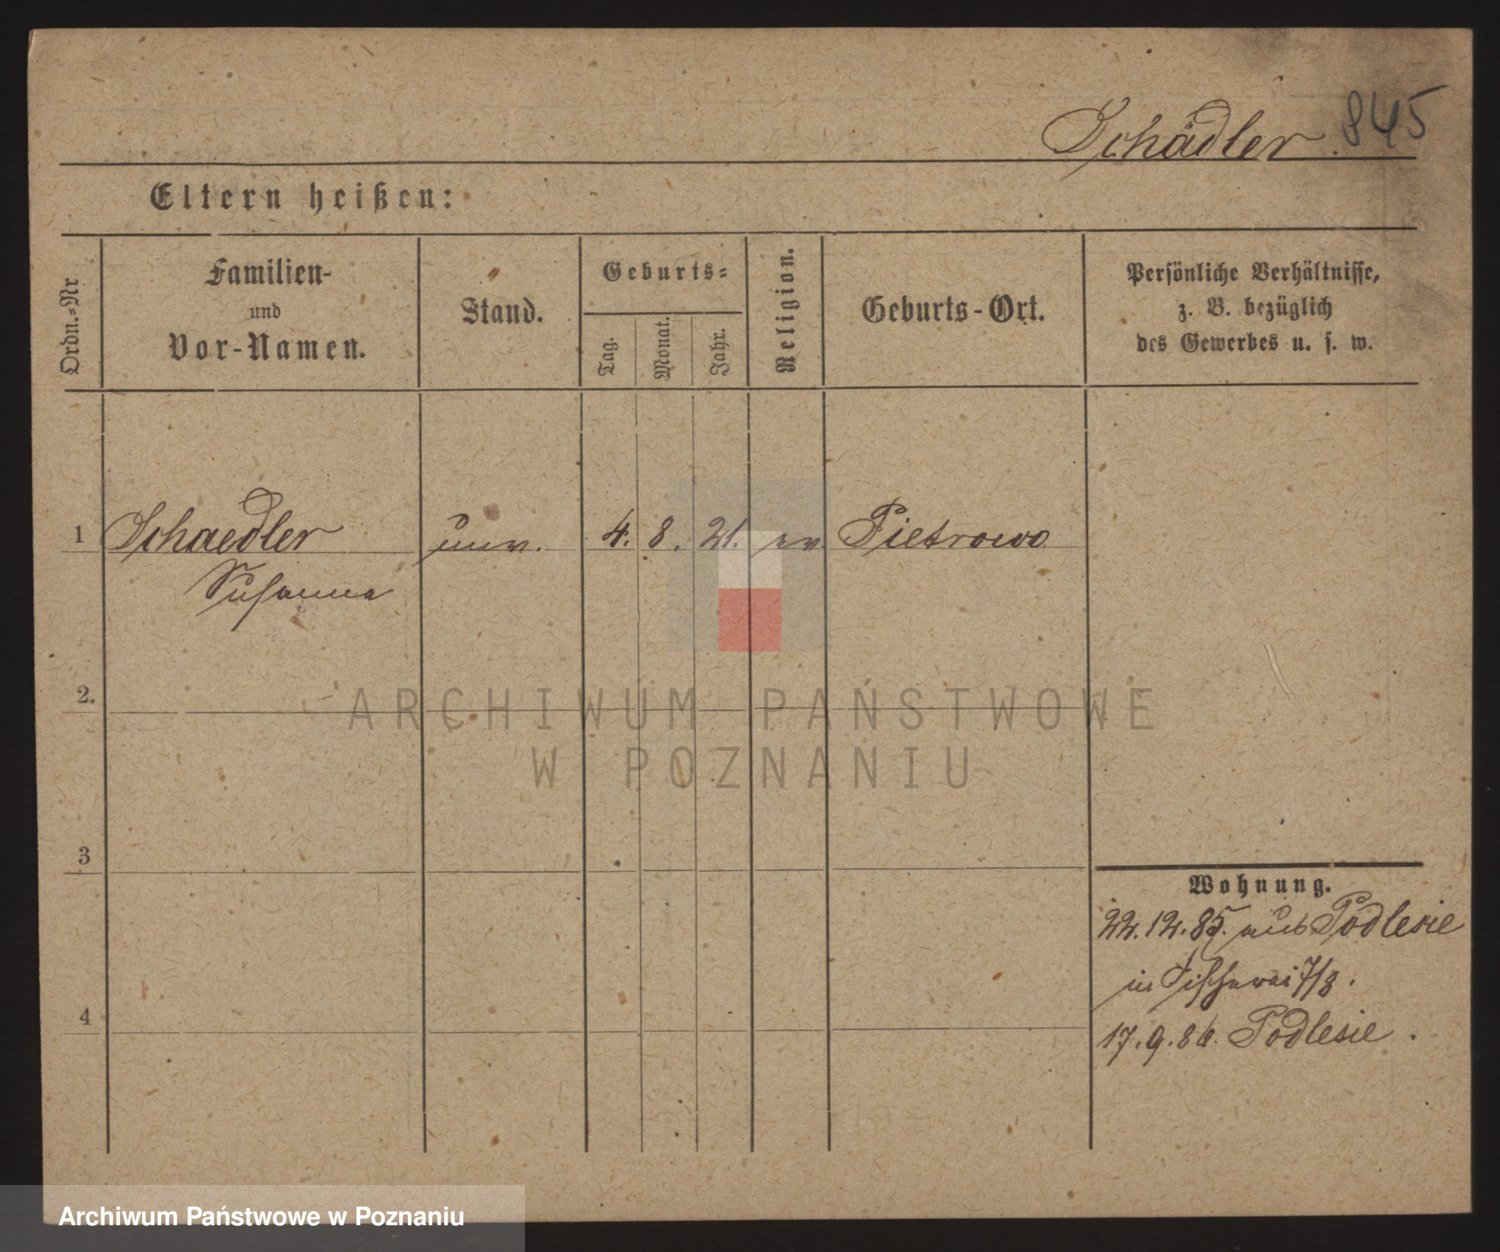 Schädler. 845
Eltern heißen:
Ordn.-Nr
Familien-
und
Vor-Namen.
Stand.
Geburts-
Tag.
Monat.
Jahr.
Religion.
Geburts-Ort.
Persönliche Verhältnisse,
z. B. bezüglich
des Gewerbes u. s. w.
1 Schaedler unv. 4. 8. 21. ev Pietrowo
Susanna
2.
ARCHIWUM PAŃSTWOWE
W POZNANIU
3
Wohnung.
22. 12. 85. aus Podlesie
in Fischerei 7/8.
4
17. 9. 86. Podlesie.
Archiwum Państwowe w Poznaniu